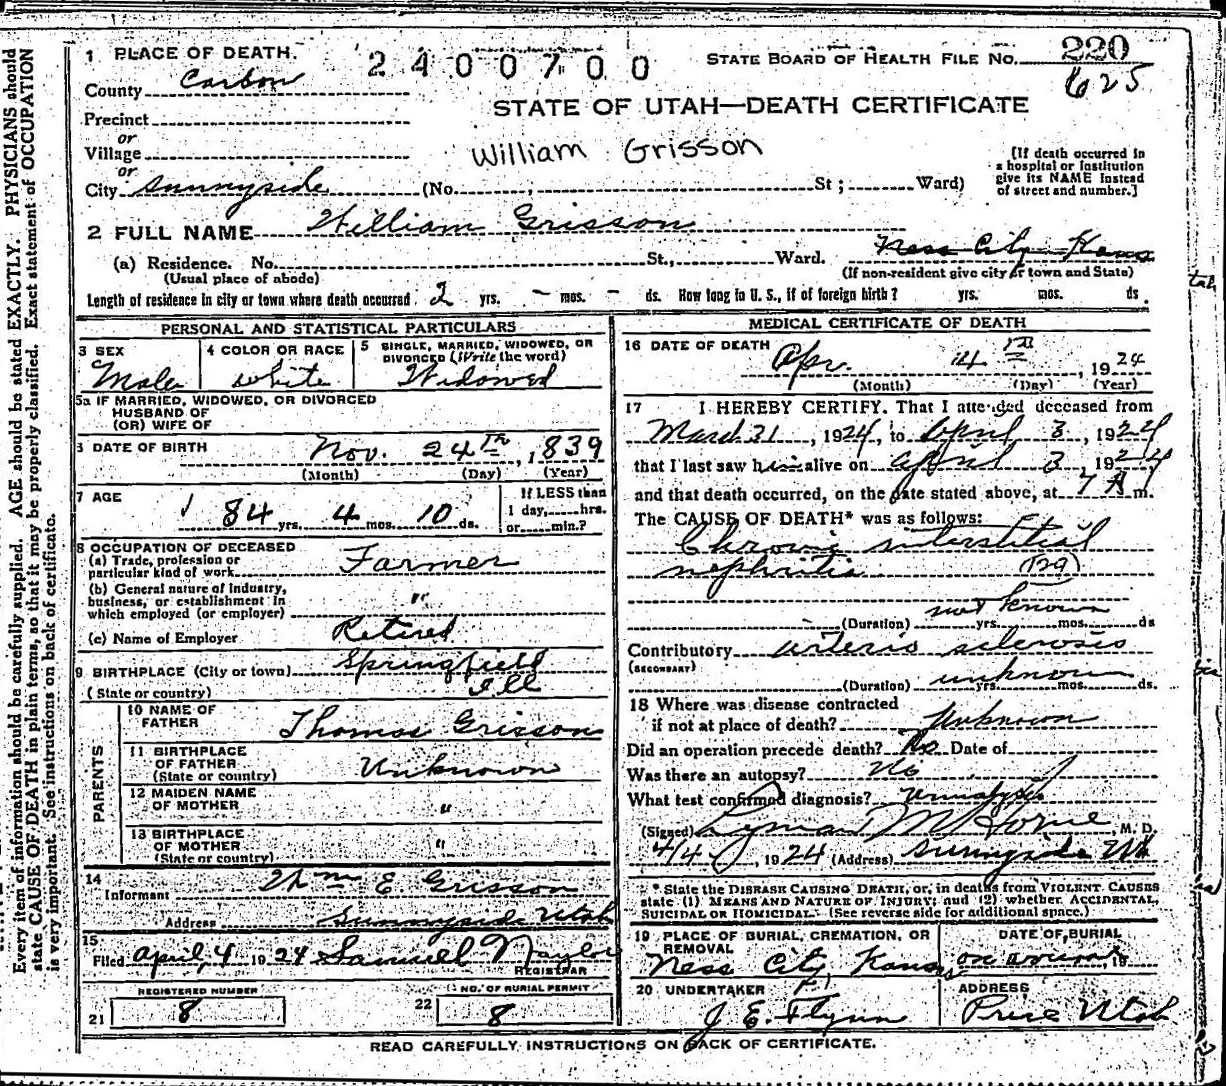 1 PLACE OF DEATH. 2400700 STATE BOARD OF HEALTH FILE No. 220
County Carbon 625
STATE OF UTAH—DEATH CERTIFICATE
Precinct
or
Village
William Grisson
[If death occurred in a hospital or institution give its NAME instead of street and number.]
or
City Sunnyside (No. ; St ; Ward)
2 FULL NAME William Grisson
(a) Residence. No. St., Ward. Ness City Kans
(Usual place of abode) (If non-resident give city or town and State)
Length of residence in city or town where death occurred 2 yrs. – mos. – ds. How long in U. S., if of foreign birth? yrs. mos. ds.
PERSONAL AND STATISTICAL PARTICULARS
3 SEX 4 COLOR OR RACE 5 SINGLE, MARRIED, WIDOWED, OR DIVORCED (Write the word)
Male White Widowed
5a IF MARRIED, WIDOWED, OR DIVORCED
HUSBAND OF
(OR) WIFE OF
6 DATE OF BIRTH Nov. 24th, 1839
(Month) (Day) (Year)
7 AGE 84 yrs. 4 mos. 10 ds. If LESS than 1 day, hrs. or min.?
8 OCCUPATION OF DECEASED
(a) Trade, profession or particular kind of work Farmer
(b) General nature of industry, business, or establishment in which employed (or employer) "
(c) Name of Employer Retired
9 BIRTHPLACE (City or town) Springfield
(State or country) Ill
PARENTS
10 NAME OF FATHER Thomas Grisson
11 BIRTHPLACE OF FATHER (State or country) Unknown
12 MAIDEN NAME OF MOTHER "
13 BIRTHPLACE OF MOTHER (State or country) "
14 Informant Wm E Grisson
Address Sunnyside Utah
15 Filed April, 4 1924 Samuel Naylor
REGISTRAR
REGISTERED NUMBER NO. OF BURIAL PERMIT
21 8 22 8
MEDICAL CERTIFICATE OF DEATH
16 DATE OF DEATH Apr. 4th, 1924
(Month) (Day) (Year)
17 I HEREBY CERTIFY. That I attended deceased from
March 31, 1924, to April 3, 1924
that I last saw him alive on April 3, 1924
and that death occurred, on the date stated above, at 7 A m.
The CAUSE OF DEATH* was as follows:
Chronic interstitial
nephritis (129)
not known
(Duration) yrs. mos. ds
Contributory arterio sclerosis
(SECONDARY)
unknown
(Duration) yrs. mos. ds.
18 Where was disease contracted
if not at place of death? Unknown
Did an operation precede death? No Date of
Was there an autopsy? No
What test confirmed diagnosis? Urinalysis
(Signed) Lyman M Horne, M. D.
4/4, 1924 (Address) Sunnyside Ut
* State the DISEASE CAUSING DEATH, or, in deaths from VIOLENT CAUSES state (1) MEANS AND NATURE OF INJURY; and (2) whether ACCIDENTAL, SUICIDAL OR HOMICIDAL. (See reverse side for additional space.)
19 PLACE OF BURIAL, CREMATION, OR REMOVAL DATE OF BURIAL
Ness City, Kansas on , 19
20 UNDERTAKER ADDRESS
J. E. Flynn Price Utah
READ CAREFULLY INSTRUCTIONS ON BACK OF CERTIFICATE.
Every item of information should be carefully supplied. AGE should be stated EXACTLY. PHYSICIANS should
state CAUSE OF DEATH in plain terms, so that it may be properly classified. Exact statement of OCCUPATION
is very important. See instructions on back of certificate.